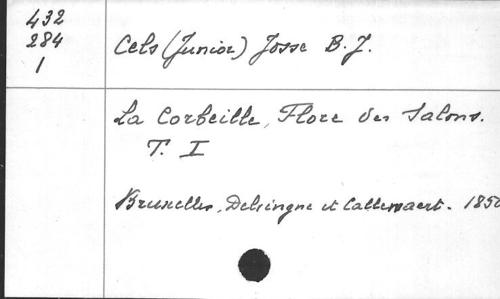 432
284
1
Cels (Junior) Josse B. J.
La Corbeille, Flore des Salons.
T. I
Bruxelles, Delsingne et Callewaert. 1850